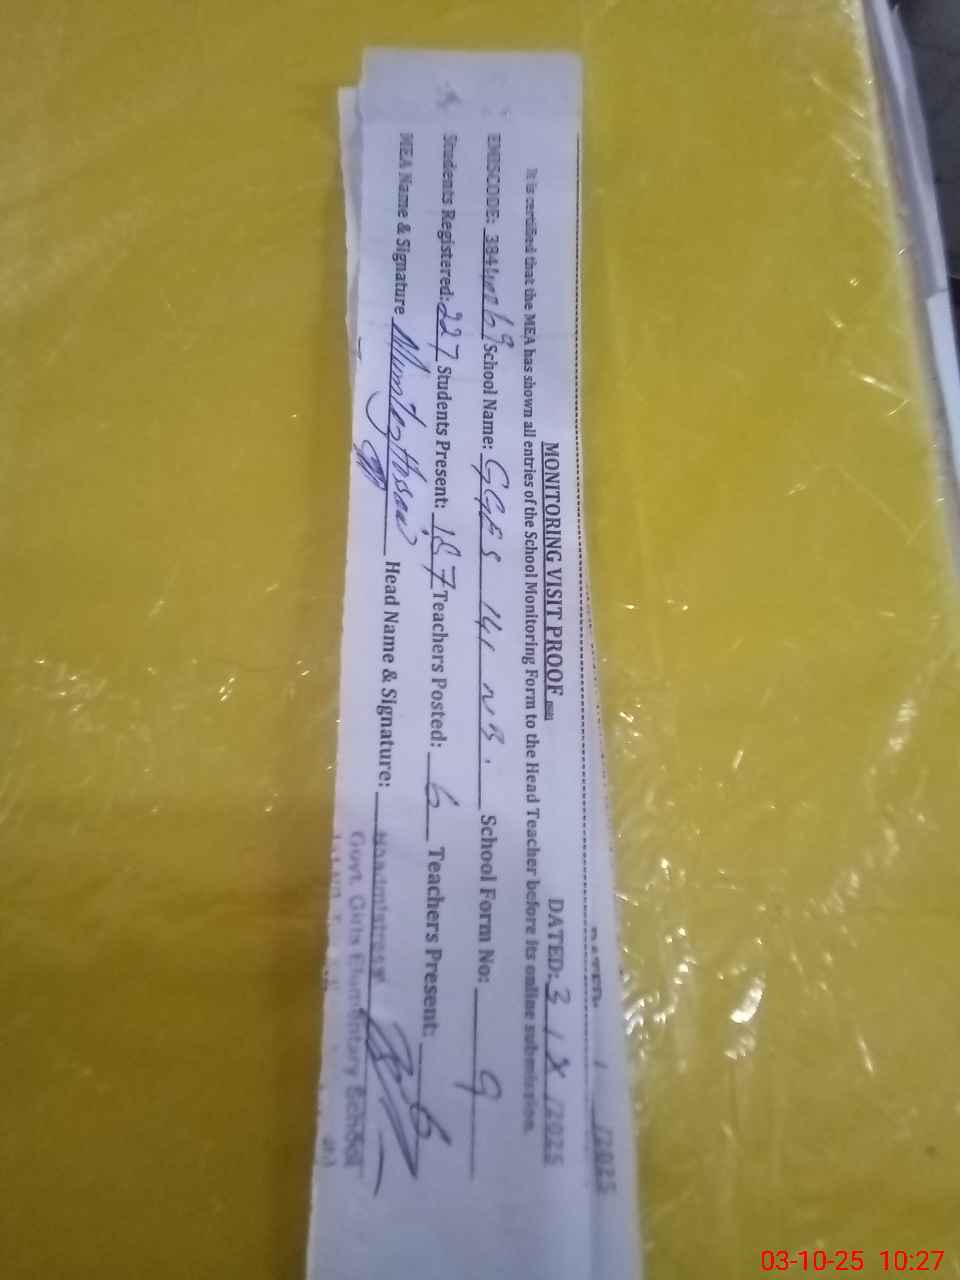 DATED: / /2025
MONITORING VISIT PROOF DATED: 3 / X /2025
It is certified that the MEA has shown all entries of the School Monitoring Form to the Head Teacher before its online submission.
EMISCODE: School Name: GGES 141 NB. School Form No: 9
Students Registered: 227 Students Present: 187 Teachers Posted: 6 Teachers Present: 6
MEA Name & Signature Head Name & Signature:
Headmistress
Govt. Girls Elementary School
03-10-25 10:27